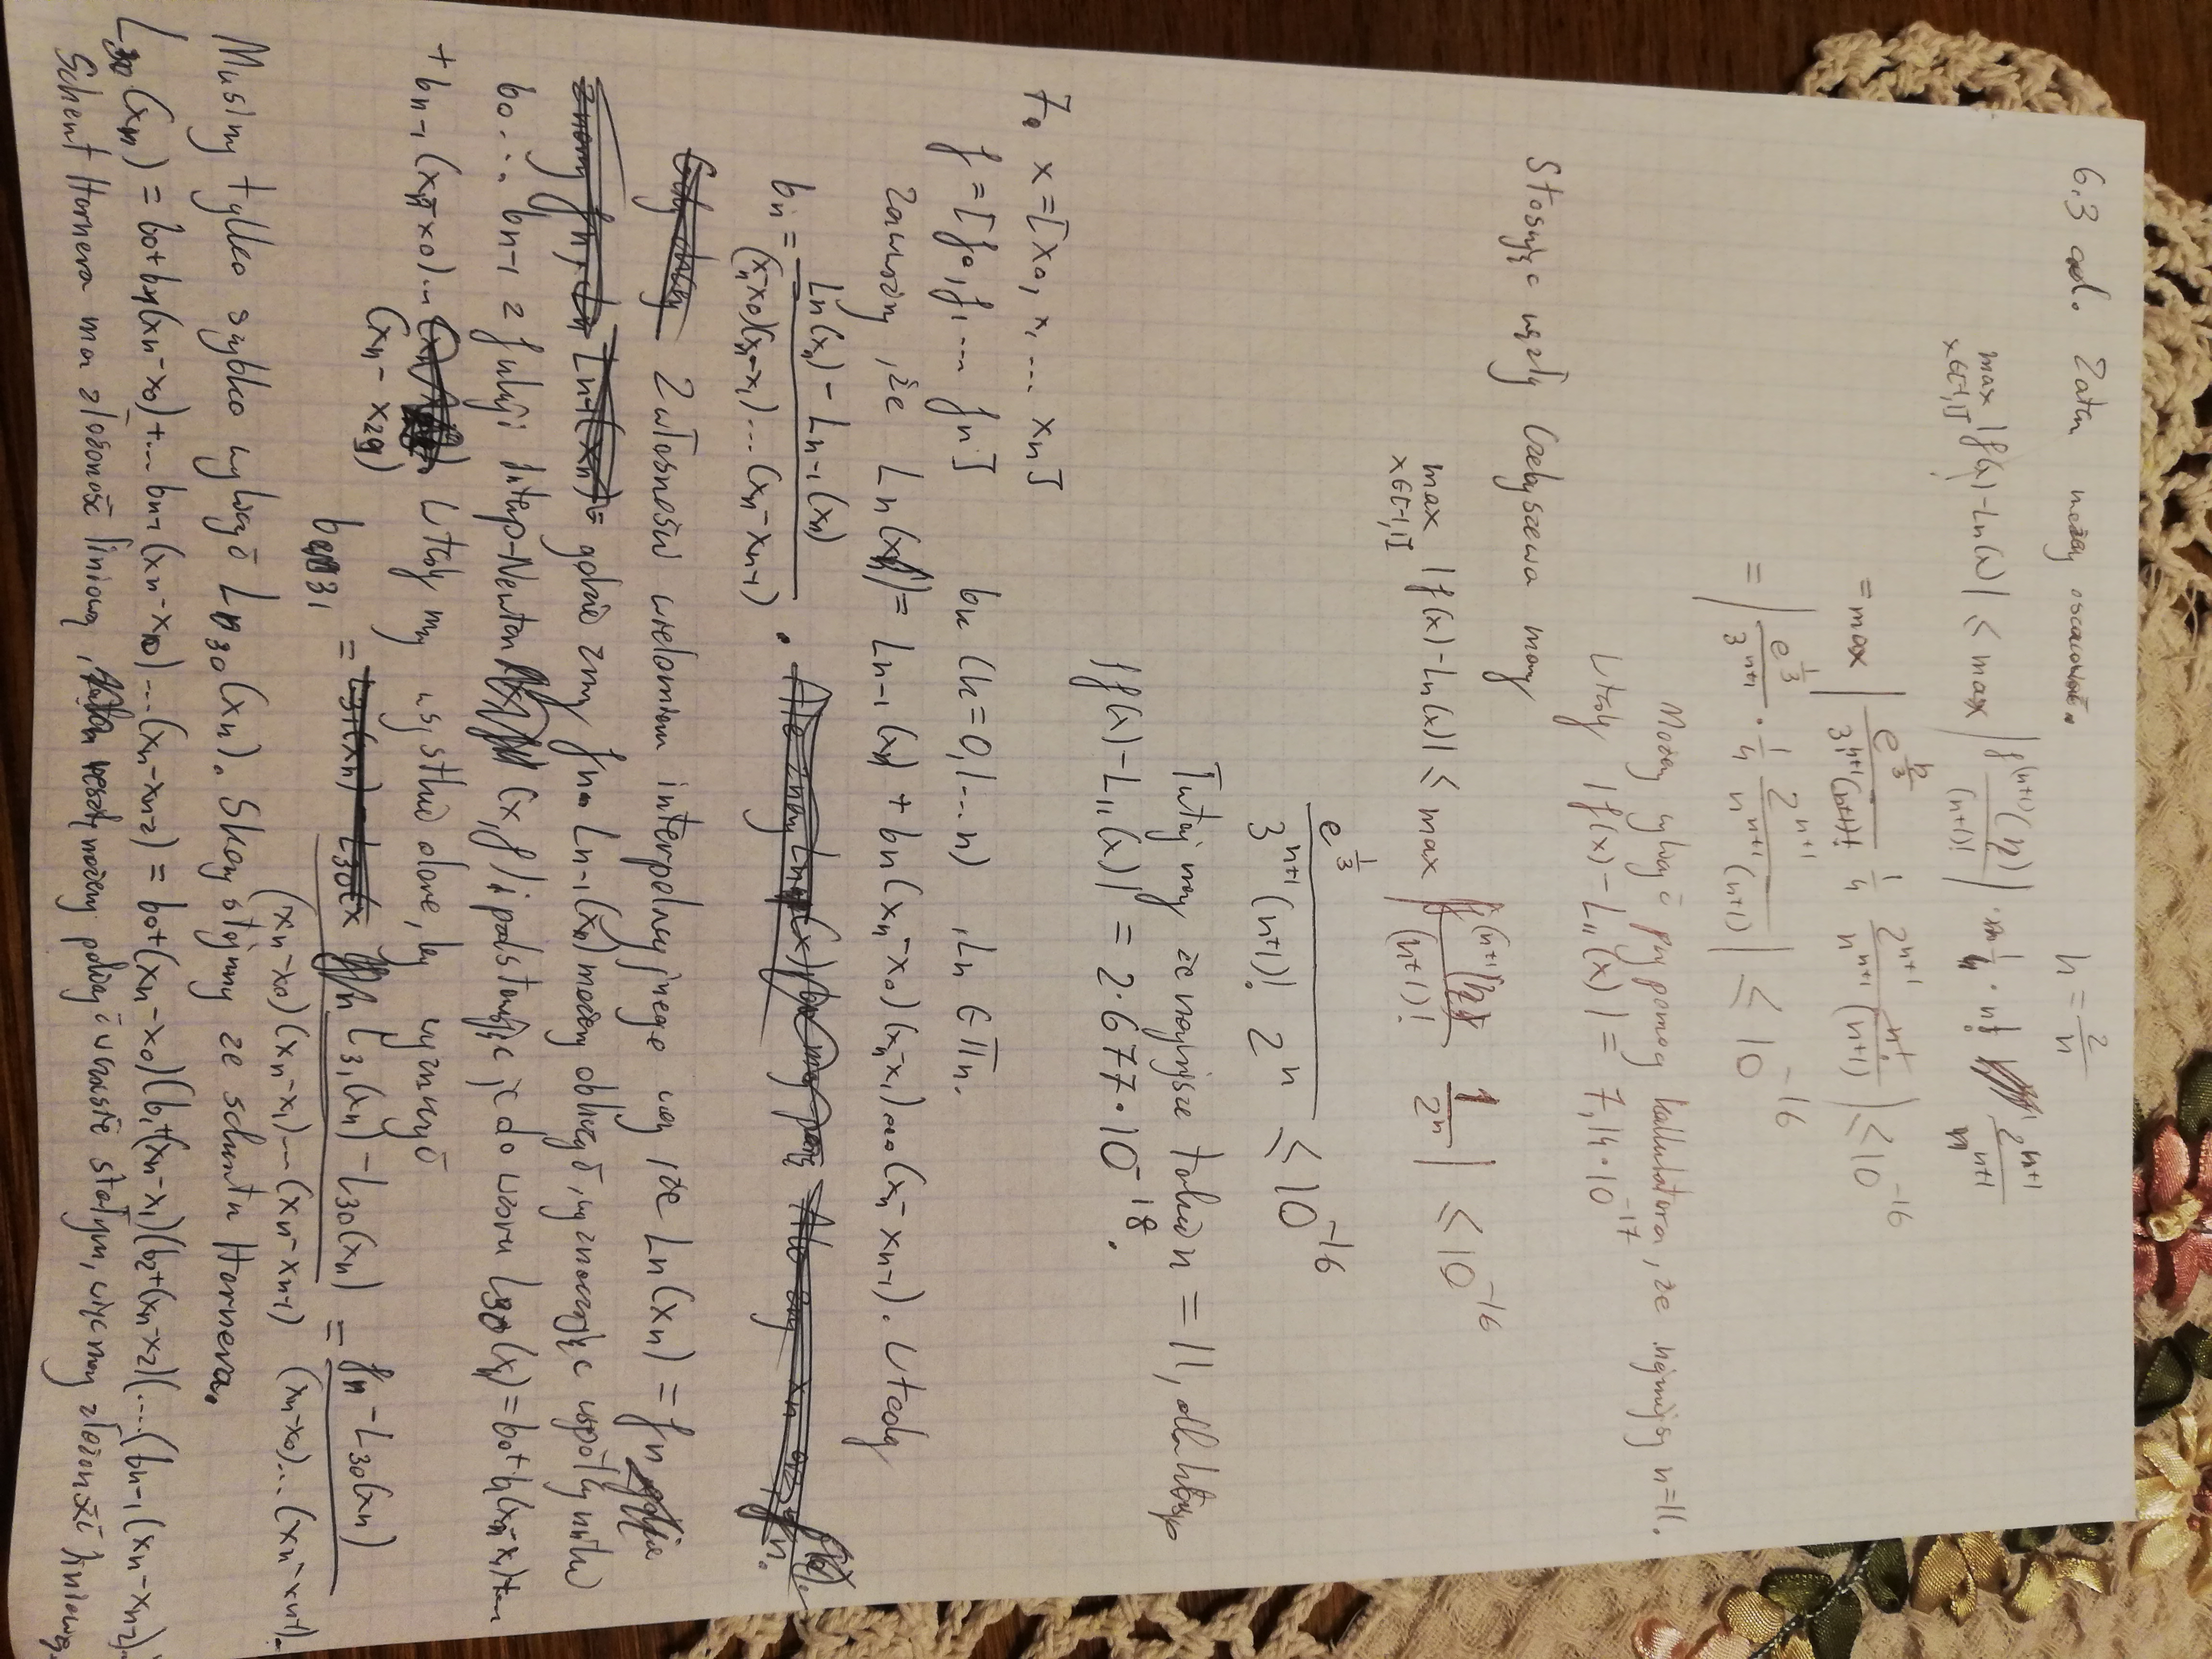 6.3 cd. Zatem możemy oszacować. h = 2/n
max x∈[-1,1] |f(x) - Ln(x)| ≤ max |f^(n+1)(η)/(n+1)!| · 1/4 · n! 2^(n+1)/n^(n+1)
= max | e^(η/3)/3^(n+1)(n+1)! 1/4 2^(n+1)/n^(n+1) n!/(n+1) | ≤ 10^-16
= | e^(1/3)/3^(n+1) · 1/4 2^(n+1)/n^(n+1)(n+1) | ≤ 10^-16
Możemy wyliczyć przy pomocy kalkulatora, że najmniejszy n=11.
Wtedy |f(x) - L11(x)| = 7,14·10^-17
Stosując węzły Czebyszewa mamy
max x∈[-1,1] |f(x) - Ln(x)| ≤ max | f^(n+1)(η)/(n+1)! 1/2^n | ≤ 10^-16
e^(1/3)/3^(n+1)(n+1)! 2^n ≤ 10^-16
Tutaj mamy że najmniejsze takie n = 11, dla którego
|f(x) - L11(x)| = 2.677·10^-18.
7. x = [x0, x1 ... xn]
f = [f0, f1 ... fn] bk (k=0,1...n), Ln ∈ Πn.
Zauważmy, że Ln(xn) = Ln-1(xn) + bn(xn-x0)(xn-x1)...(xn-xn-1). Wtedy
bn = Ln(xn) - Ln-1(xn) / (xn-x0)(xn-x1)...(xn-xn-1) .
Z własności wielomianu interpolacyjnego wiemy, że Ln(xn) = fn
gdzie znamy fn. Ln-1(xn) możemy obliczyć, wyznaczając współczynniki
b0... bn-1 z funkcji Interp-Newton (x,f) i podstawiając je do wzoru L30(xn) = b0+b1(xn-x1)+...
+ bn-1(xn-x0)... (xn-x29) Wtedy mamy wszystkie dane, by wyznaczyć
b31 = L31(xn) - L30(xn) / (xn-x0)(xn-x1)...(xn-xn-1) = fn - L30(xn) / (xn-x0)...(xn-xn-1).
Musimy tylko szybko wyliczyć L30(xn). Skorzystajmy ze schematu Hornera.
L30(xn) = b0+b1(xn-x0)+... bn-1(xn-x0)...(xn-xn-2) = b0+(xn-x0)(b1+(xn-x1)(b2+(xn-x2)(....(bn-1(xn-xn-2)
Schemat Hornera ma złożoność liniową, możemy policzyć w czasie stałym, więc mamy złożoność liniową.